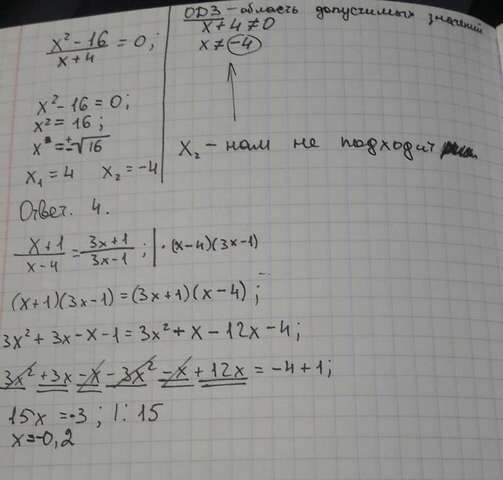 x² - 16 / x + 4 = 0;
x² - 16 = 0;
x² = 16;
x = ±√16
x₁ = 4 x₂ = -4
ОДЗ - область допустимых значений
x + 4 ≠ 0
x ≠ -4
x₂ - нам не подходит
Ответ. 4.
x + 1 / x - 4 = 3x + 1 / 3x - 1 ; | · (x - 4)(3x - 1)
(x + 1)(3x - 1) = (3x + 1)(x - 4) ;
3x² + 3x - x - 1 = 3x² + x - 12x - 4;
3x² + 3x - x - 3x² - x + 12x = -4 + 1;
15x = -3 ; | : 15
x = -0,2